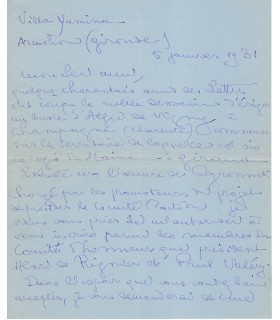 Villa Yamina
Arcachon (Gironde)
5 janvier 1931
Mon cher ami,
quelques charentais amis des Lettres
ont conçu le noble dessein d'ériger
un buste d'Alfred de Vigny à
Champagne (Charente) commune
sur le territoire de laquelle est
le Maine - Giraud
par les promoteurs du projet
de présider le Comité d'action je
viens vous prier de m'autoriser à
vous inscrire parmi les membres du
Comité d'honneur que président
Henri de Régnier et Paul Valéry.
Dans l'espoir que vous voudrez bien
accepter, je vous demanderai de me